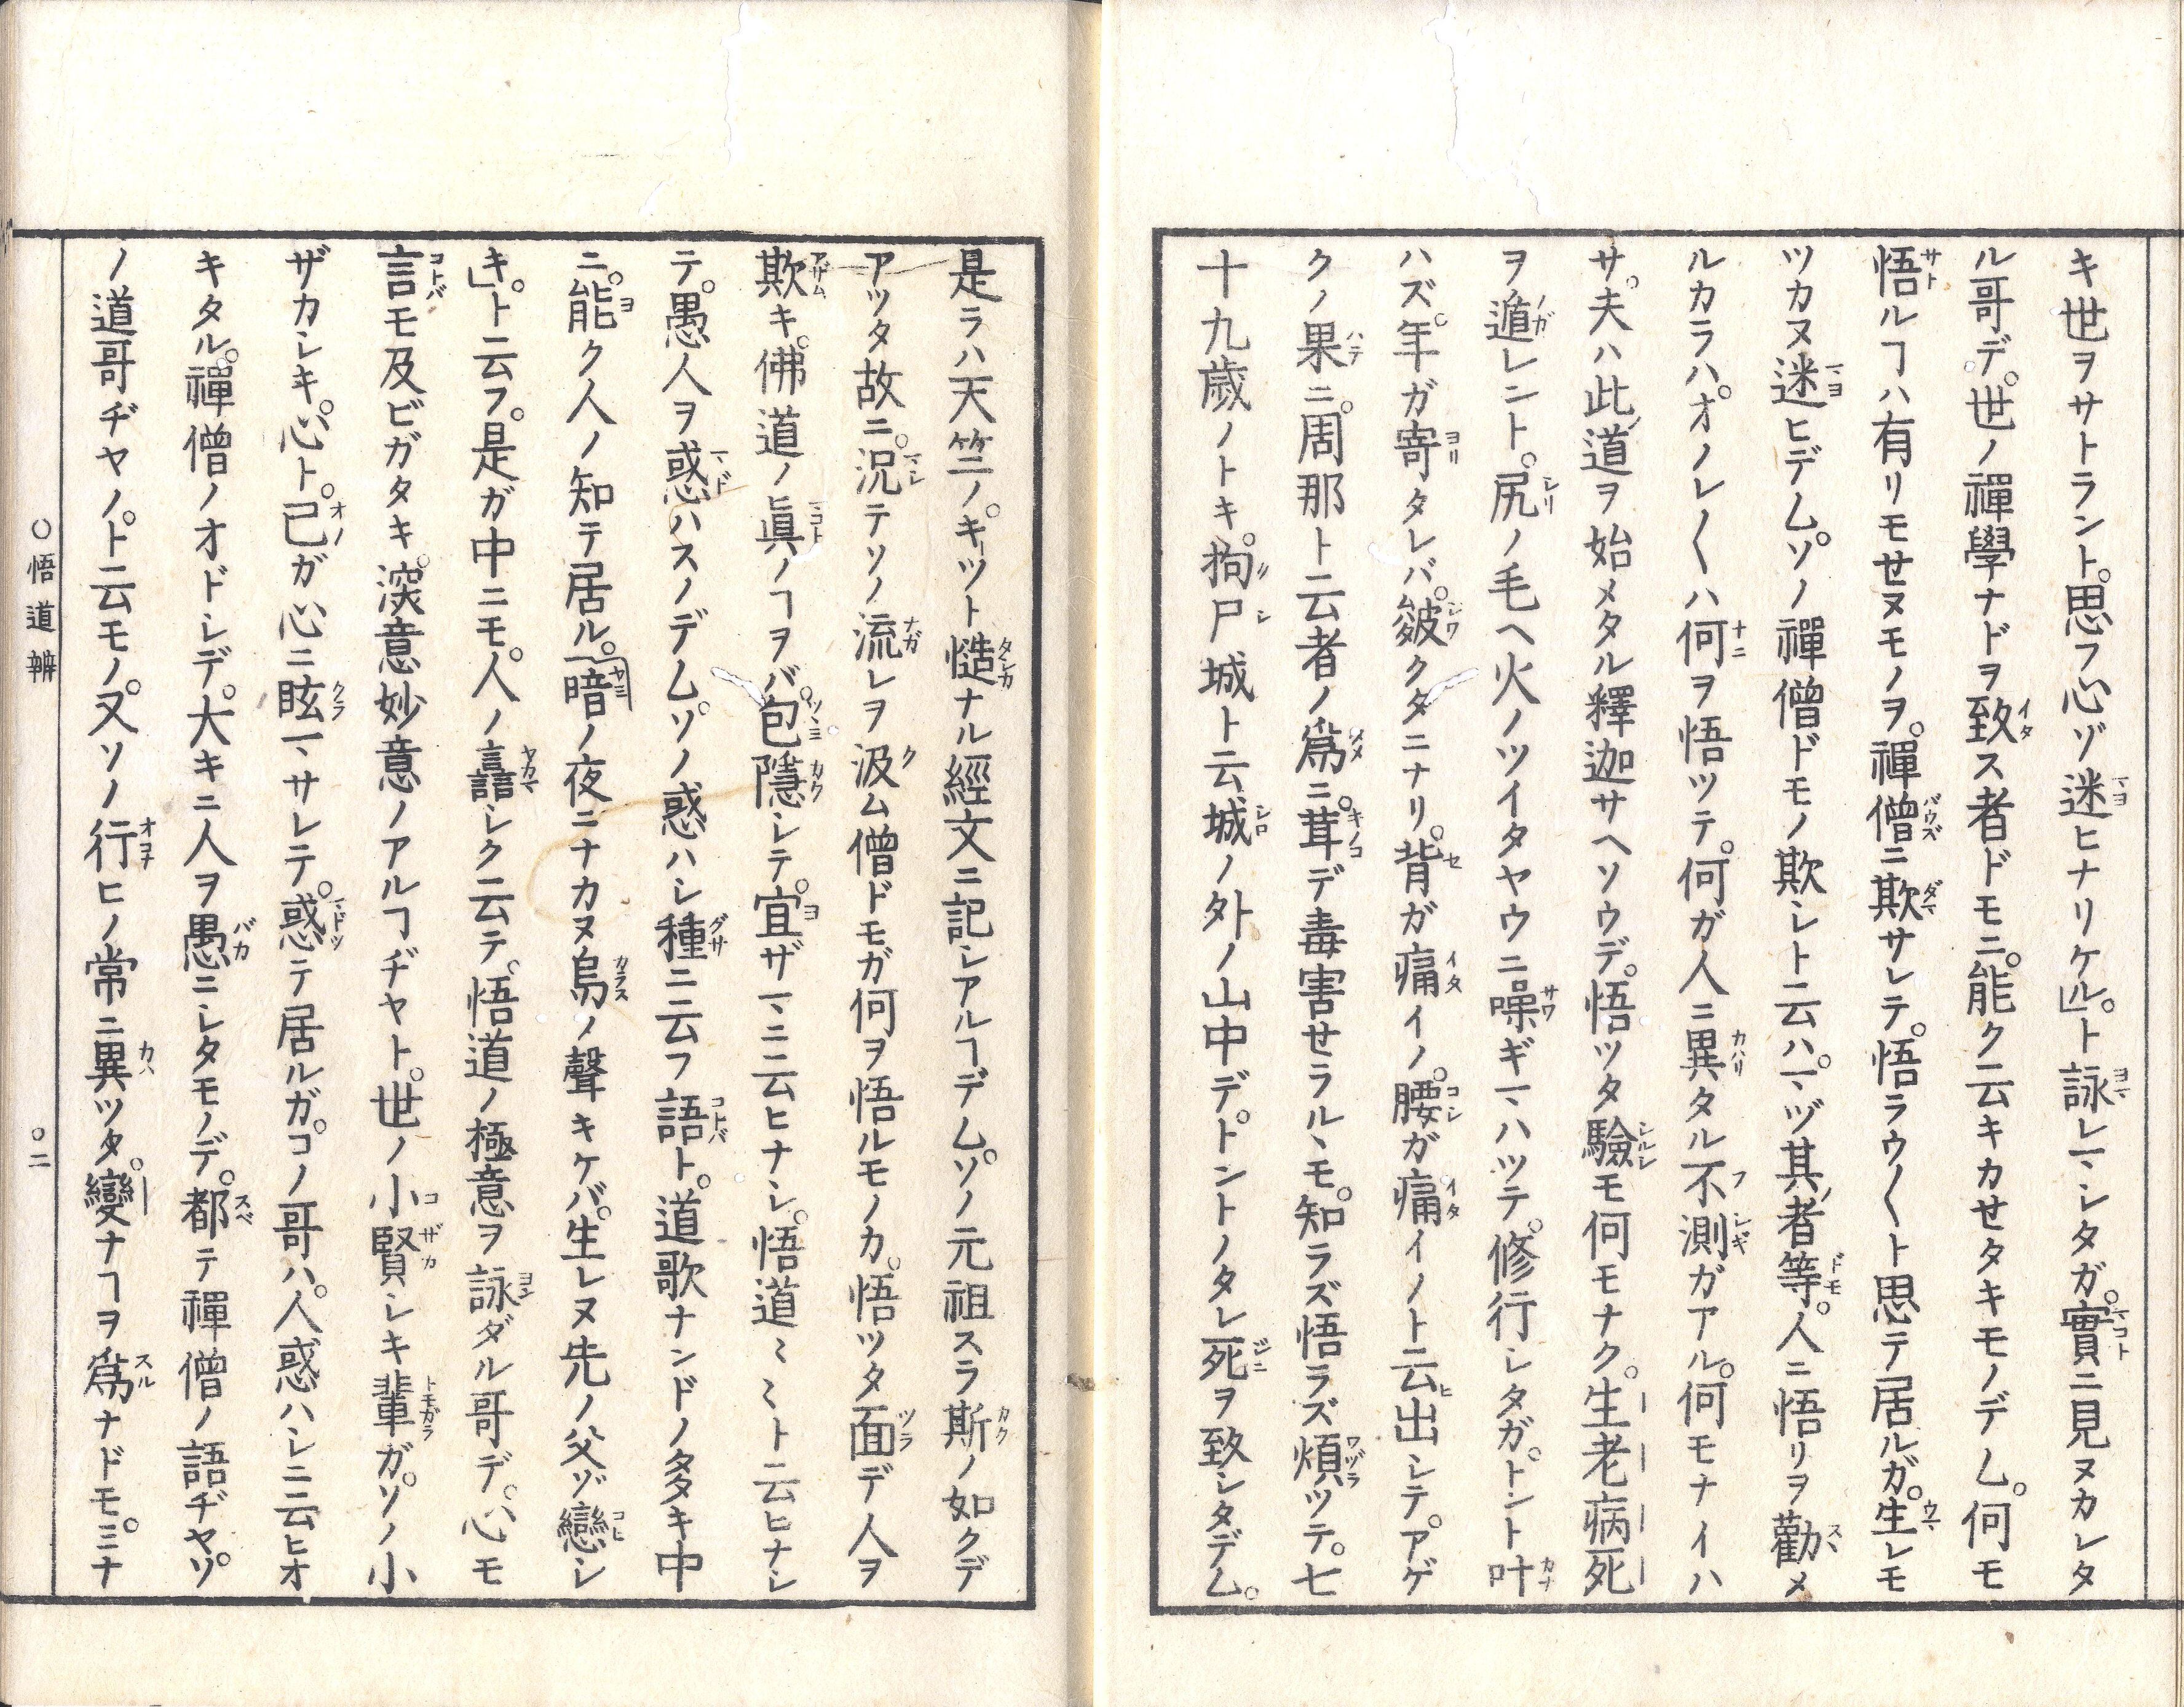 キ世ヲサトラント。思フ心ゾ迷ヒナリケル」。ト詠レマシタガ。實ニ見ヌカレタ
ル哥デ。世ノ禪學ナドヲ致ス者ドモニ。能ク云キカセタキモノデム。何モ
悟ルヿハ有リモせヌモノヲ。禪僧ニ欺サレテ。悟ラウ〱ト思テ居ルガ。生レモ
ツカヌ迷ヒデム。ソノ禪僧ドモノ欺シト云ハ。マヅ其ノ者等。人ニ悟リヲ勸メ
ルカラハ。オノレ〱ハ何ヲ悟ツテ。何ガ人ニ異タル不測ガアル。何モナイハ
サ。夫ハ此ノ道ヲ始メタル釋迦サヘソウデ。悟ツタ驗モ何モナク。生老病死
ヲ遁レント。尻ノ毛ヘ火ノツイタヤウニ噪ギマハツテ。修行レタガ。トント叶
ハズ。年ガ寄タレバ。皺クタニナリ。背ガ痛イノ。腰ガ痛イノト云出シテ。アゲ
クノ果ニ。周那ト云者ノ爲ニ。茸デ毒害せラルヽモ。知ラズ悟ラズ煩ツテ。七
十九歲ノトキ。拘尸城ト云城ノ外ノ山中デ。トントノタレ死ヲ致シタデム。
是ラハ天竺ノ。キツト慥ナル經文ニ記シアルヿデム。ソノ元祖スラ斯ノ如クデ
アツタ故ニ。況テソノ流レヲ汲ム僧ドモガ何ヲ悟ルモノカ。悟ツタ面デ人ヲ
欺キ。佛道ノ眞ノヿヲバ。包隱シテ。宜ザマニ云ヒナシ。悟道〻〻ト云ヒナシ
テ。愚人ヲ惑ハスノデム。ソノ惑ハシ種ニ云フ語ト。道歌ナンドノ多キ中
ニ。能ク人ノ知テ居ル。「暗ノ夜ニナカヌ烏ノ聲キケバ。生レヌ先ノ父ゾ戀シ
キ」。ト云フ。是ガ中ニモ。人ノ譶シク云テ。悟道ノ極意ヲ詠ダル哥デ。心モ
言モ及ビガタキ。深意妙意ノアルヿヂヤト。世ノ小賢シキ輩ガ。ソノ小
ザカシキ。心ト。己ガ心ニ眩マサレテ。惑テ居ルガ。コノ哥ハ。人惑ハシニ云ヒオ
キタル。禪僧ノオドシデ。大キニ人ヲ愚ニシタモノデ。都テ禪僧ノ語ヂヤソ
ノ道哥ヂヤノ。ト云モノ。又ソノ行ヒノ常ニ異ツタ。變ナヿヲ爲ナドモ。ミナ
○悟道辨
○二